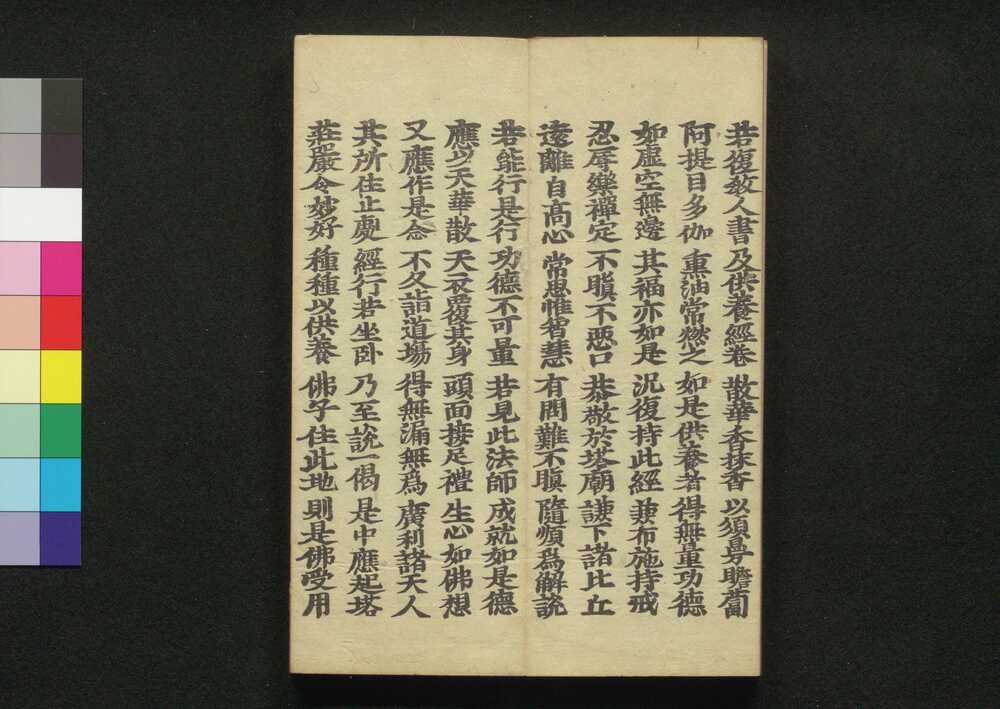 若復敎人書 及供養經卷 散華香抹香 以須曼瞻蔔
阿提目多伽 熏油常燃之 如是供養者 得無量功德
如虛空無邊 其福亦如是 況復持此經 兼布施持戒
忍辱樂禪定 不瞋不惡口 恭敬於塔廟 謙下諸比丘
遠離自高心 常思惟智慧 有問難不瞋 隨順爲解說
若能行是行 功德不可量 若見此法師 成就如是德
應以天華散 天衣覆其身 頭面接足禮 生心如佛想
又應作是念 不久詣道場 得無漏無爲 廣利諸天人
其所住止處 經行若坐卧 乃至說一偈 是中應起塔
莊嚴令妙好 種種以供養 佛子住此地 則是佛受用